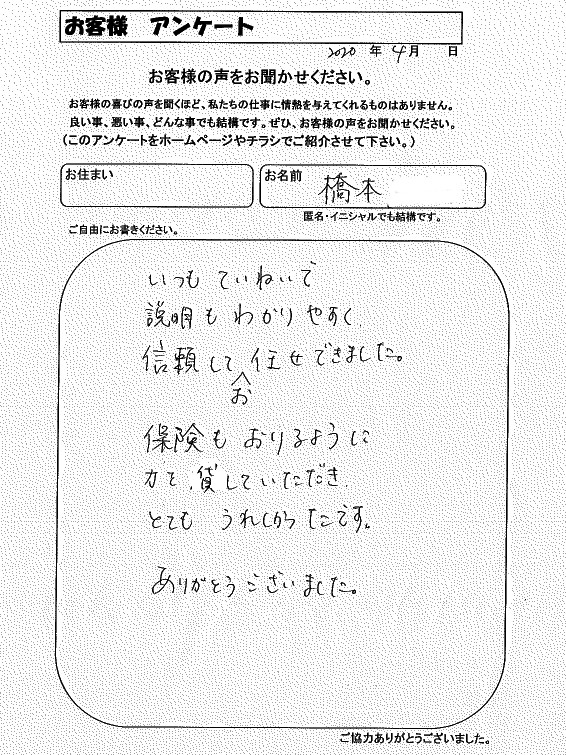 お客様 アンケート
2020 年 4月 日
お客様の声をお聞かせください。
お客様の喜びの声を聞くほど、私たちの仕事に情熱を与えてくれるものはありません。
良い事、悪い事、どんな事でも結構です。ぜひ、お客様の声をお聞かせください。
(このアンケートをホームページやチラシでご紹介させて下さい。)
お住まい
お名前 橋本
匿名・イニシャルでも結構です。
ご自由にお書きください。
いつも ていねいで
説明も わかりやすく、
信頼して お任せできました。
保険も おりるように
力を、貸していただき、
とても うれしかったです。
ありがとうございました。
ご協力ありがとうございました。